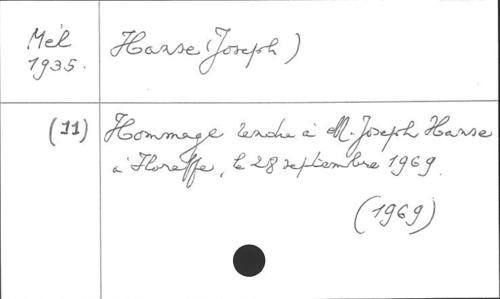 Mél
1935.
Hanse (Joseph)
(11)
Hommage rendu à M. Joseph Hanse
à Floreffe, le 28 septembre 1969.
(1969)